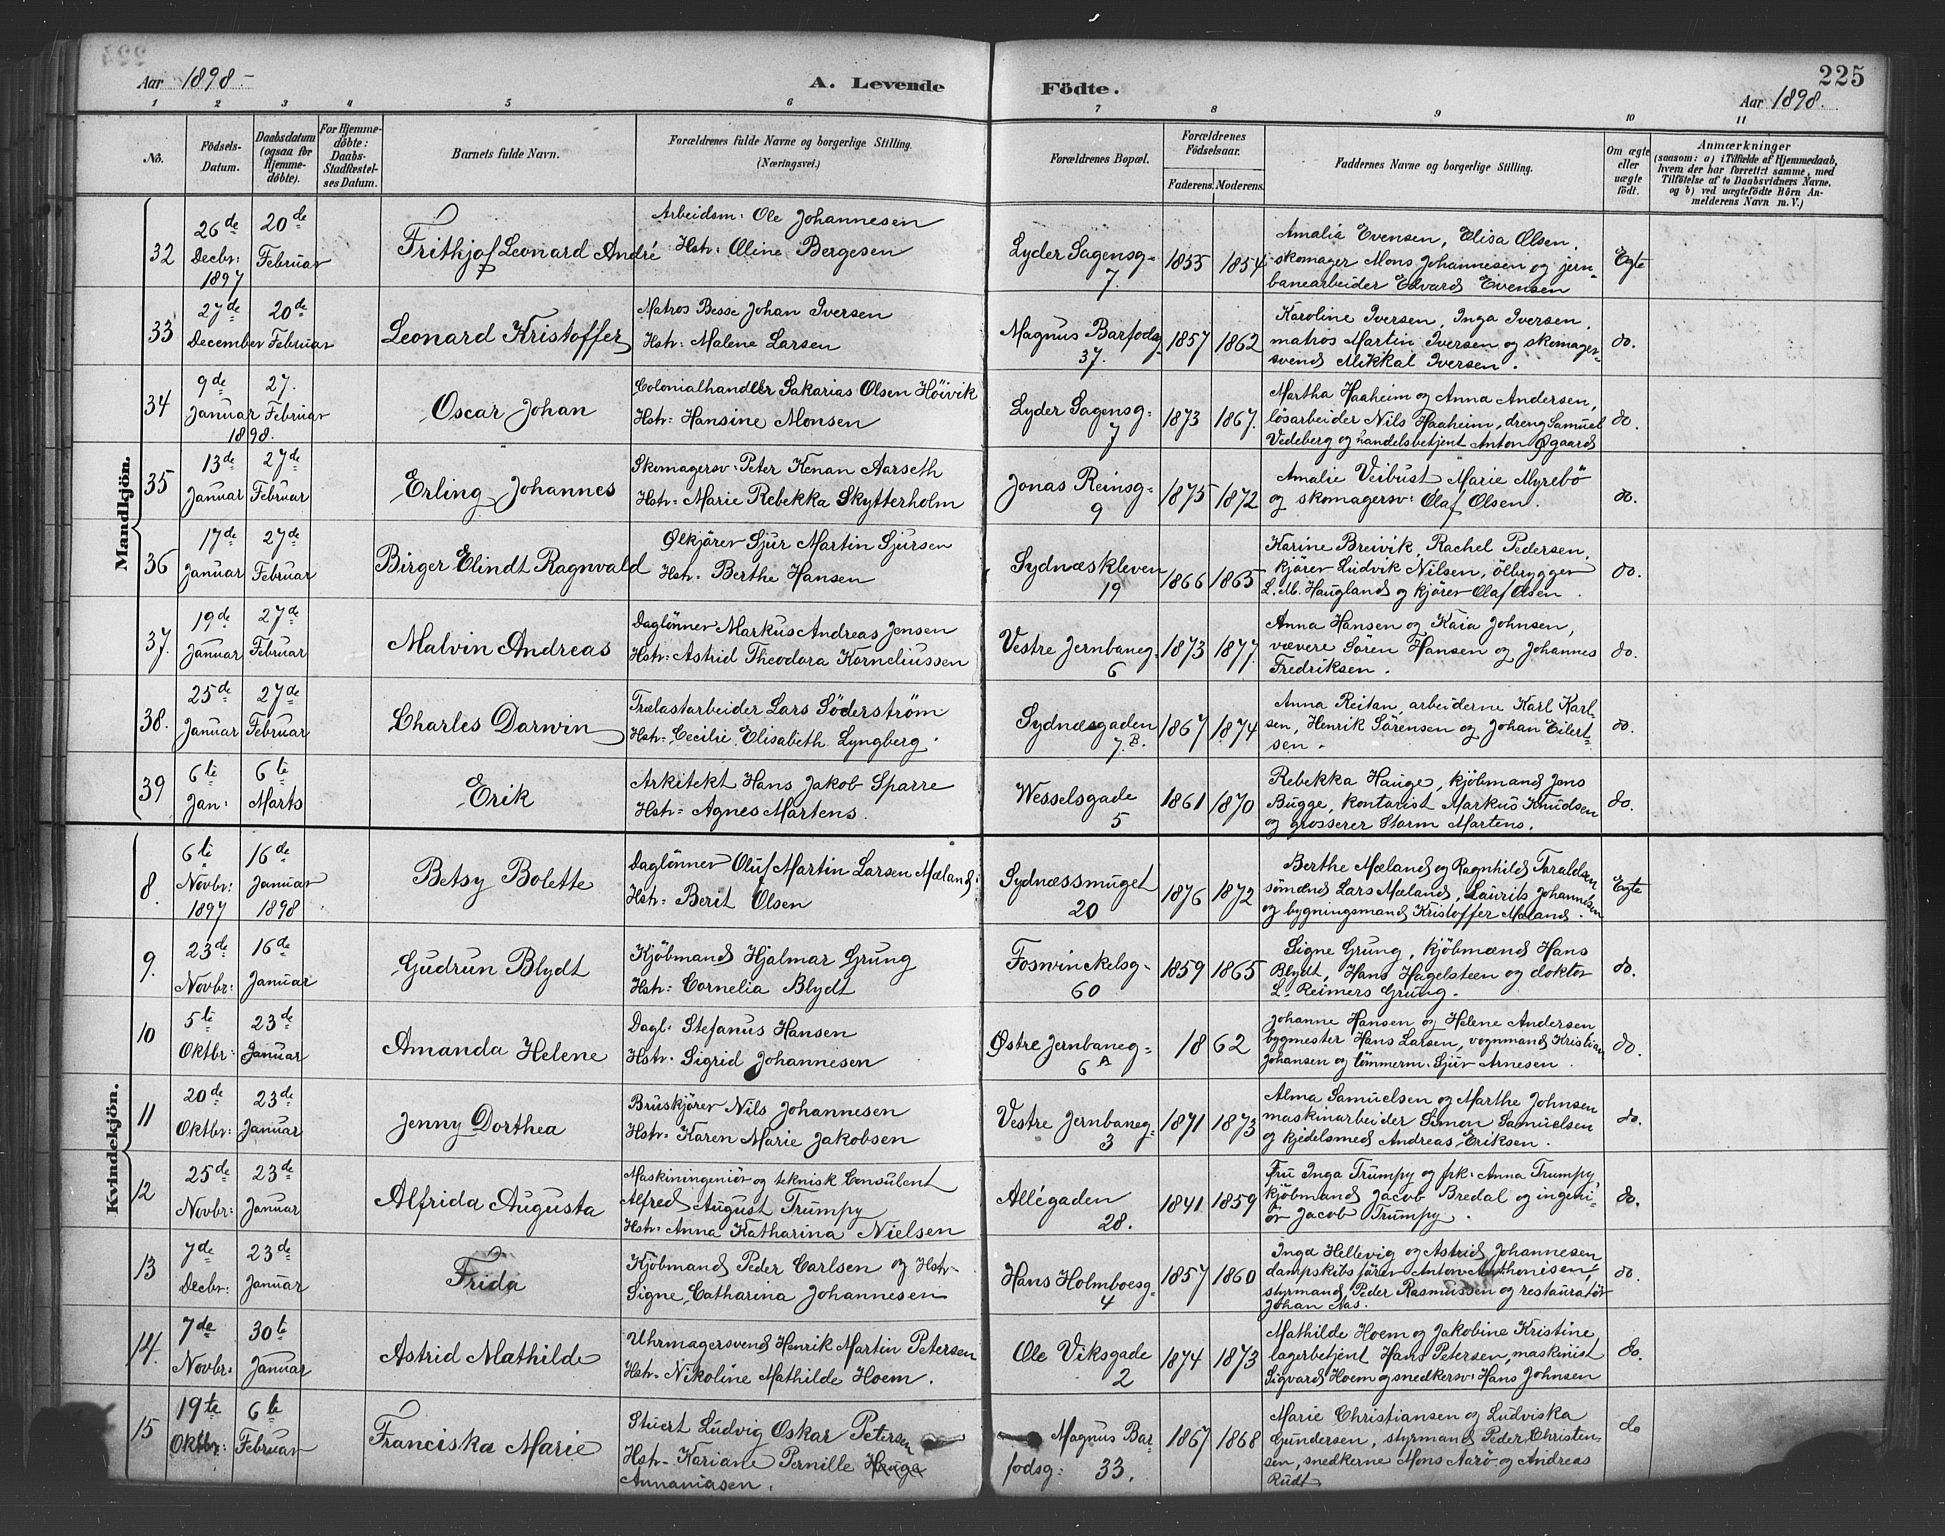 225
Aar 1898.-
A. Levende Födte.
Aar 1898.
1 2 3 4 5 6 7 8 9 10 11
No.
Födsels-Datum.
Daabsdatum (ogsaa for Hjemme-döbte).
For Hjemme-döbte: Daabs-Stadfæstel-ses Datum.
Barnets fulde Navn.
Forældrenes fulde Navne og borgerlige Stilling.
(Næringsvei.)
Forældrenes Bopæl.
Forældrenes Födselsaar.
Faderens. Moderens.
Faddernes Navne og borgerlige Stilling.
Om ægte eller uægte födt.
Anmærkninger
(saasom: a) i Tilfælde af Hjemmedaab, hvem der har forrettet samme, med Tilföielse af to Daabsvidners Navne, og b) ved uægtefödte Börn An-melderens Navn m. V.)
Mandkjön.
32 26de Decbr: 1897 20de Februar Frithjof Leonard André
Arbeidsm: Ole Johannesen
Hstr: Oline Bergesen
Lyder Sagensg= 7. 1855 1854
Amalia Evensen, Elisa Olsen,
skomager Mons Johannesen og jern-
banearbeider Edvard Evensen
Egte
33 27de December 20de Februar Leonard Kristoffer
Matros Besse Johan Iversen
Hstr: Malene Larsen
Magnus Barfodsg= 37. 1857 1862
Karoline Iversen, Inga Iversen,
matros Martin Iversen og skomager-
svend Mikkal Iversen.
do.
34 9de Januar 1898. 27. Februar Oscar Johan
Colonialhandler Sakarias Olsen Höivik
Hstr: Hansine Monsen
Lyder Sagensg= 7 1873 1867.
Martha Haaheim og Anna Andersen,
løsarbeider Nils Haaheim, dreng Samuel
Vedeberg og handelsbetjent Anton Øgaard
do.
35 13de Januar 27de Februar Erling Johannes
Skomagersv: Peter Kenan Aarseth
Hstr: Marie Rebekka Skytterholm
Jonas Reinsg= 9 1875 1872
Amalie Veibust Marie Myrebö
og skomagersv: Olaf Olsen.
do.
36 17de Januar 27de Februar Birger Elindt Ragnvald
Ølkjører Sjur Martin Sjursen
Hstr: Berthe Hansen
Sydnæskleven 19 1866 1865
Karine Breivik, Rachel Pedersen,
kjører Ludvik Nilsen, ölbrygger
L. M. Haugland og kjörer Olaf Olsen.
do.
37. 19de Januar 27de Februar Malvin Andreas
Daglönner Markus Andreas Jensen
Hstr: Astrid Theodora Korneliussen
Vestre Jernbaneg= 6 1873 1877.
Anna Hansen og Kaia Johnsen,
vævere Sören Hansen og Johannes
Fredriksen.
do.
38. 25de Januar 27de Februar Charles Darwin
Trælastarbeider Lars Söderström
Hstr: Cecilie Elisabeth Lyngberg.
Sydnæsgaden 7.B. 1867 1874
Anna Reitan, arbeiderne Karl Karl-
sen, Henrik Sörensen og Johan Eilert-
sen.
do.
39 6te Jan: 6te Marts Erik
Arkitekt Hans Jakob Sparre
Hstr: Agnes Martens.
Wesselsgade 5 1861 1870
Rebekka Hauge, kjöbmand Jens
Bugge, kontorist Markus Knudsen
og grosserer Storm Martens.
do.
Kvindekjön.
8. 6te Novbr: 1897 16de Januar 1898 Betsy Bolette
Daglönner Oluf Martin Larsen Mæland
Hstr: Berit Olsen
Sydnæssmuget 20 1876 1872
Berthe Mæland og Ragnhild Taraldsen
sømænd Lars Mæland, Laurits Johannesen
og bygningsmand Kristoffer Mæland.
Egte
9. 23de Novbr: 16de Januar Gudrun Blydt
Kjöbmand Hjalmar Grung
Hstr: Cornelia Blydt
Foswinckelsg= 60 1859 1865
Signe Grung, kjöbmænd Hans
Blydt, Hans Hagelsteen og doktor
L. Reimers Grung.
do.
10 5te Oktbr: 23de Januar Amanda Helene
Dagl: Stefanus Hansen
Hstr: Sigrid Johannesen
Østre Jernbaneg= 6 A 1862
Johanne Hansen og Helene Andersen
bygmester Hans Larsen, vognmand Kristian
Johansen og tömmerm: Sjur Arnesen.
do.
11 20de Oktbr: 23de Januar Jenny Dorthea
Bruskjörer Nils Johannesen
Hstr: Karen Marie Jakobsen
Vestre Jernbaneg= 3 1871 1873
Alma Samuelsen og Marthe Johnsen
maskinarbeider Simon Samuelsen
og kjedelsmed Andreas Eriksen.
do.
12 25de Novbr: 23de Januar Alfrida Augusta
Maskiningeniör og teknisk Consulent
Alfred August Trumpy
Hstr: Anna Katharina Nielsen
Allégaden 28. 1841 1859
Fru Inga Trumpy og frk: Anna Trumpy,
kjöbmand Jacob Bredal og ingeni-
ör Jacob Trumpy.
do.
13 7de Decbr: 23de Januar Frida
Kjöbmand Peder Carlsen og Hstr
Signe Catharina Johannesen
Hans Holmboesg= 4 1857 1860
Inga Hellevig og Astrid Johannesen
dampskibsförer Anton Anthonisen,
styrmand Peder Rasmussen og restauratör
Johan Aas.
do.
14. 7de Novbr: 30te Januar Astrid Mathilde
Uhrmagersvend Henrik Martin Petersen
Hstr: Nikoline Mathilde Hoem.
Ole Viksgade 2 1874 1873
Mathilde Hoem og Jakobine Kristine
lagerbetjent Hans Petersen, maskinist
Sigvard Hoem og snedkersv: Hans Johnsen
do.
15 19te Oktbr: 6te Februar Franciska Marie
Stuert Ludvig Oskar Petersen
Hstr: Kariane Pernille Hauga
Annaniasen.
Magnus Bar-
fodsg: 33. 1867 1868
Marie Christiansen og Ludviska
Gundersen, styrmand Peder Christen-
sen, snedkerne Mons Aarö og Andreas
Rudt
do